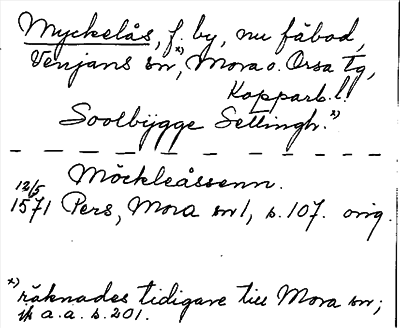 Myckelås, f. by, nu fäbod,
Venjans sn,x) Mora o. Orsa tg,
Kopparb. l.
Soolbÿgge Settingh.x)
Möckleåssenn.
12/5
1571 Pers, Mora sn 1, s. 107. orig.
x) räknades tidigare till Mora sn;
jfr a.a. s. 201.